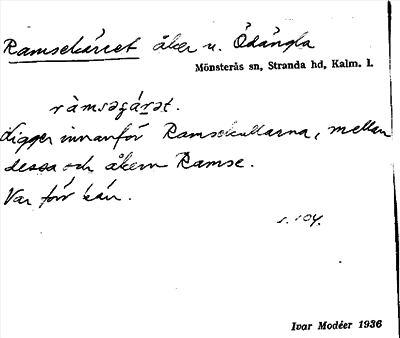 Ramsekärret åker u. Ödängla
Mönsterås sn, Stranda hd, Kalm. l.
ràmsəɕá̱rət.
Ligger innanför Ramsekullarna, mellan
dessa och åkern Ramse.
Var förr kärr.
s. 104.
Ivar Modéer 1936